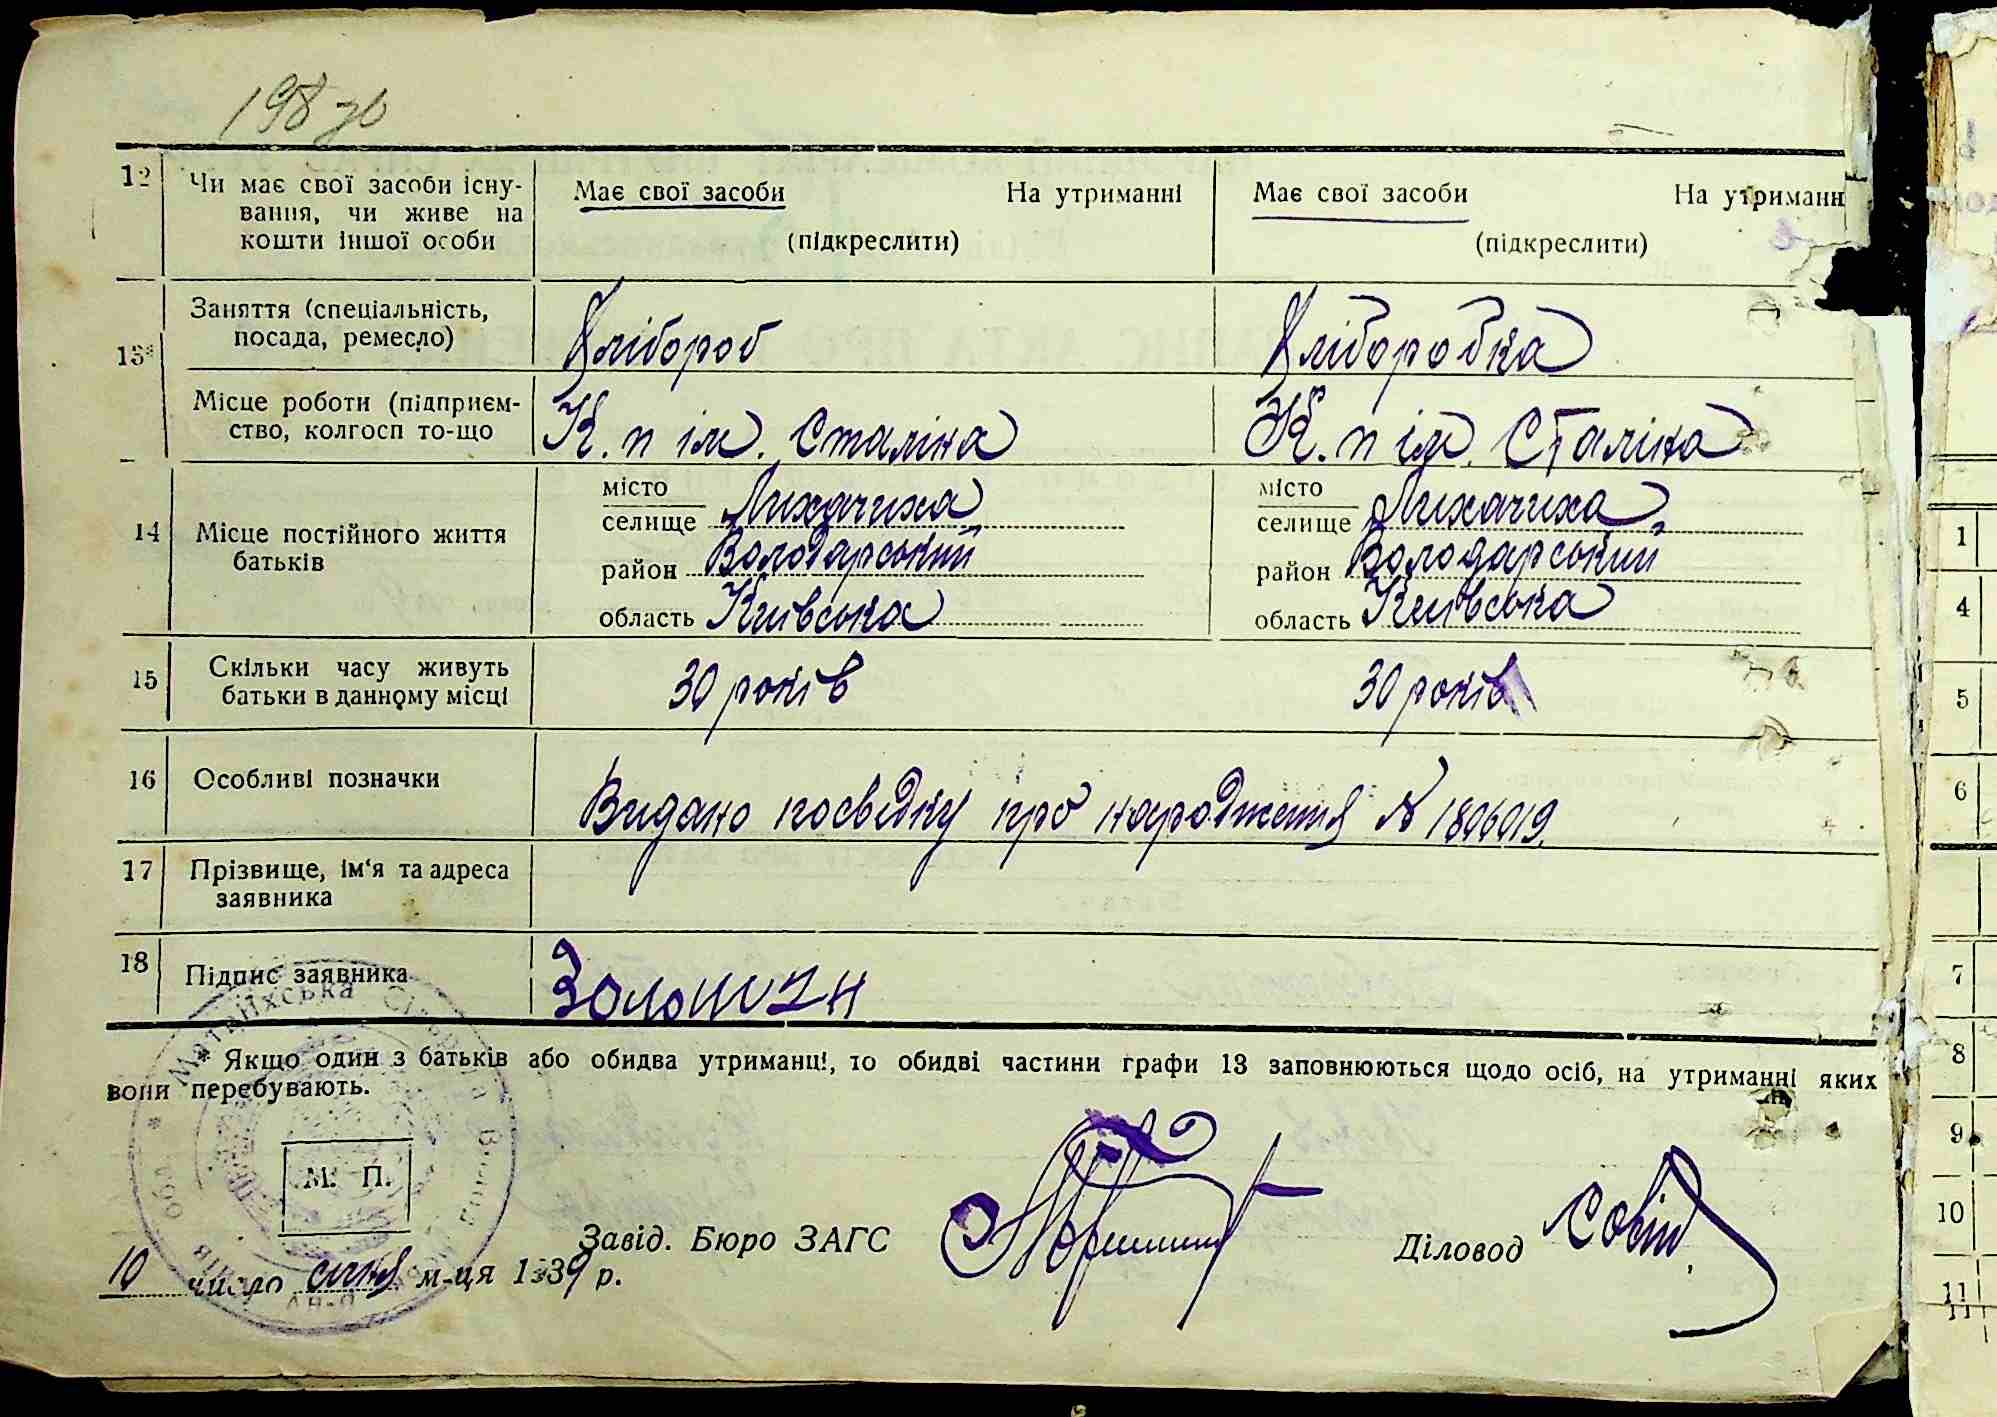 198 зв
12 Чи має свої засоби існу- Має свої засоби На утриманні Має свої засоби На утриманн
вання, чи живе на
кошти іншої особи (підкреслити) (підкреслити)
13* Заняття (спеціальність, Хлібороб Хліборобка
посада, ремесло)
Місце роботи (підприєм- К. п ім. Сталіна К. п ім. Сталіна
ство, колгосп то-що
14 Місце постійного життя місто місто
батьків селище Лихачиха селище Лихачиха,
район Володарський район Володарський
область Київська область Київська
15 Скільки часу живуть 30 років 30 років
батьки в данному місці
16 Особливі позначки Видано посвідку про народження № 1806019.
17 Прізвище, ім'я та адреса
заявника
18 Підпис заявника
* Якщо один з батьків або обидва утриманці, то обидві частини графи 13 заповнюються щодо осіб, на утриманні яких
вони перебувають.
М. П.
Завід. Бюро ЗАГС Діловод
10 число січня м-ця 1939 р.
1
4
5
6
7
8
9
10
11